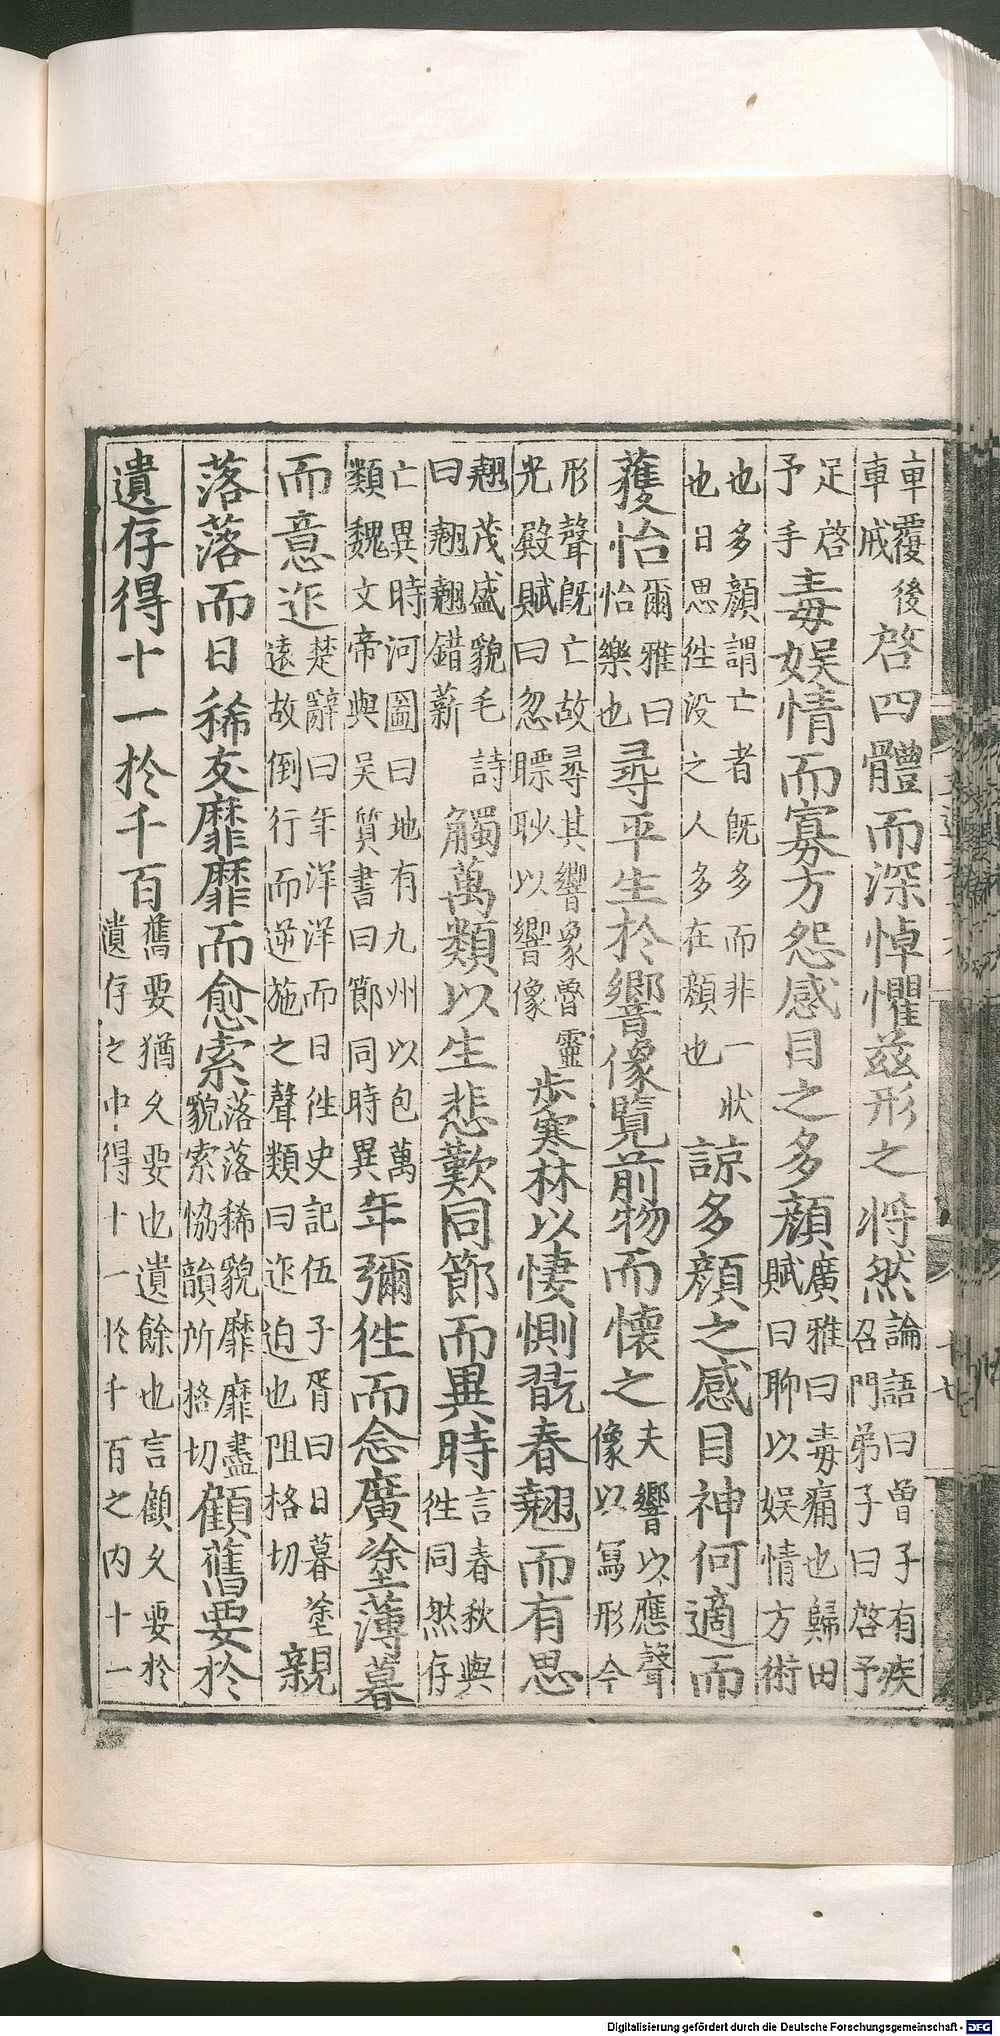 車覆後車戒啓四體而深悼懼茲形之將然論語曰曾子有疾召門弟子曰啓予
足啓予手毒娛情而寡方怨感目之多顏廣雅曰毒痛也歸田賦曰聊以娛情方術
也多顏謂亡者既多而非一狀也日思往没之人多在顏也諒多顏之感目神何適而
獲怡爾雅曰怡樂也尋平生於響像覽前物而懷之夫響以應聲像以寫形今
形聲既亡故尋其響象魯靈光殿賦曰忽瞟眇以響像步寒林以悽惻翫春翹而有思
翹茂盛貌毛詩曰翹翹錯薪觸萬類以生悲歎同節而異時言春秋與往同然存
亡異時河圖曰地有九州以包萬類魏文帝與吳質書曰節同時異年彌往而念廣塗薄暮
而意迮楚辭曰年洋洋而日往史記伍子胥曰日暮塗遠故倒行而逆施之聲類曰迮迫也阻格切親
落落而日稀友靡靡而愈索落落稀貌靡靡盡貌索協韻所格切顧舊要於
遺存得十一於千百舊要猶久要也遺餘也言顧久要於遺存之中得十一於千百之內十一
Digitalisierung gefördert durch die Deutsche Forschungsgemeinschaft - DFG